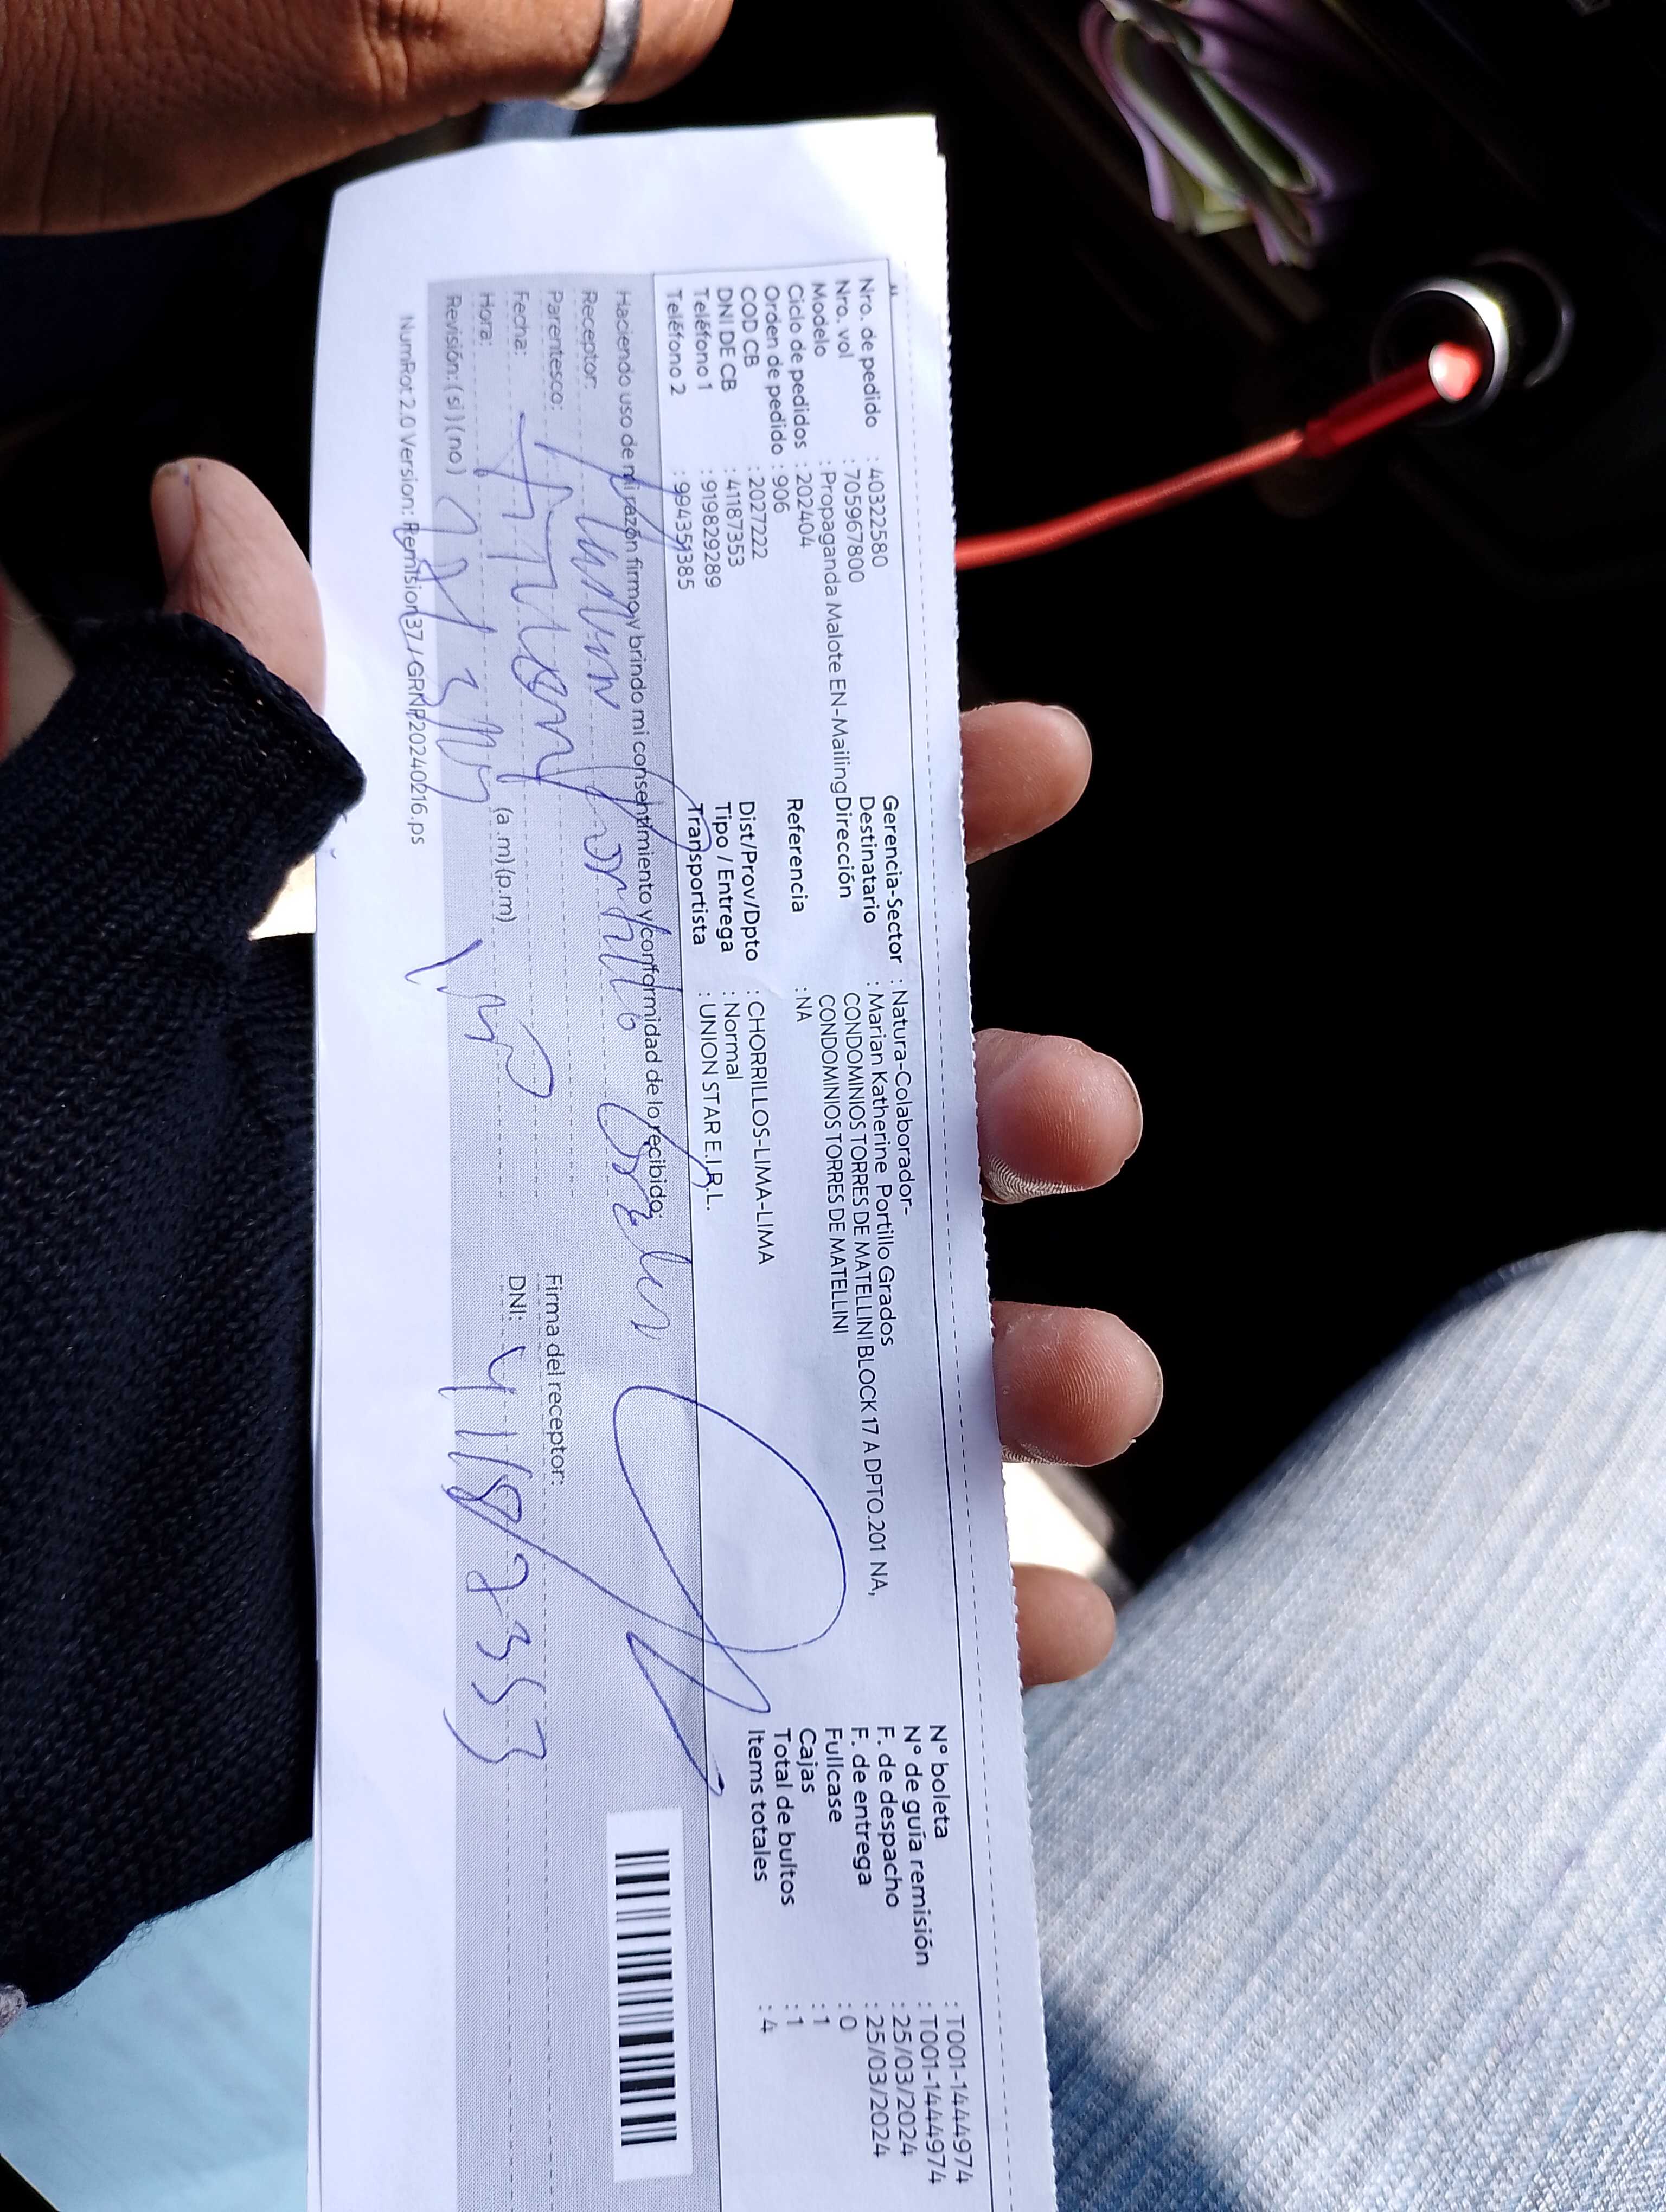 Nro. de pedido : 40322580
Nro. vol : 705967800
Modelo : Propaganda Malote EN-Mailing
Ciclo de pedidos : 202404
Orden de pedido : 906
COD CB : 2027222
DNI DE CB : 41187353
Teléfono 1 : 919829289
Teléfono 2 : 994351385
Gerencia-Sector : Natura-Colaborador-
Destinatario : Marian Katherine Portillo Grados
Dirección CONDOMINIOS TORRES DE MATELLINI BLOCK 17 A DPTO.201 NA,
CONDOMINIOS TORRES DE MATELLINI
Referencia : NA
Dist/Prov/Dpto : CHORRILLOS-LIMA-LIMA
Tipo / Entrega : Normal
Transportista : UNION STAR E.I.R.L.
N° boleta : T001-1444974
N° de guía remisión : T001-1444974
F. de despacho : 25/03/2024
F. de entrega : 25/03/2024
Fullcase : 0
Cajas : 1
Total de bultos : 1
Items totales : 4
Haciendo uso de mi razón firmo y brindo mi consentimiento y conformidad de lo recibido:
Receptor: Portillo
Parentesco:
Fecha:
Hora: (a .m) (p.m)
Revisión: ( si ) ( no )
Firma del receptor:
DNI: 41187353
NumRot 2.0 Version: Remision37 / GRNP20240216.ps